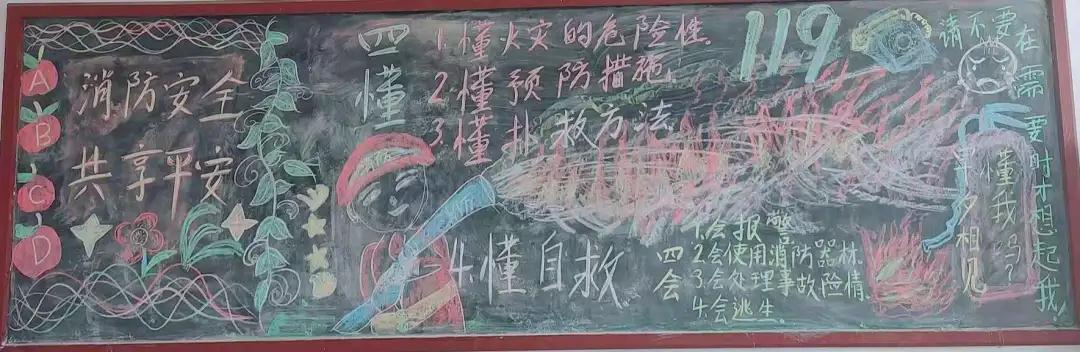 A
B
C
D
消防安全
共享平安
四懂
1.懂火灾的危险性。
2.懂预防措施。
3.懂扑救方法
4.懂自救
119
四会
1.会报警
2.会使用消防器材.
3.会处理事故险情
4.会逃生.
请不要在需要时才想起我！
早夕相见
懂我吗？